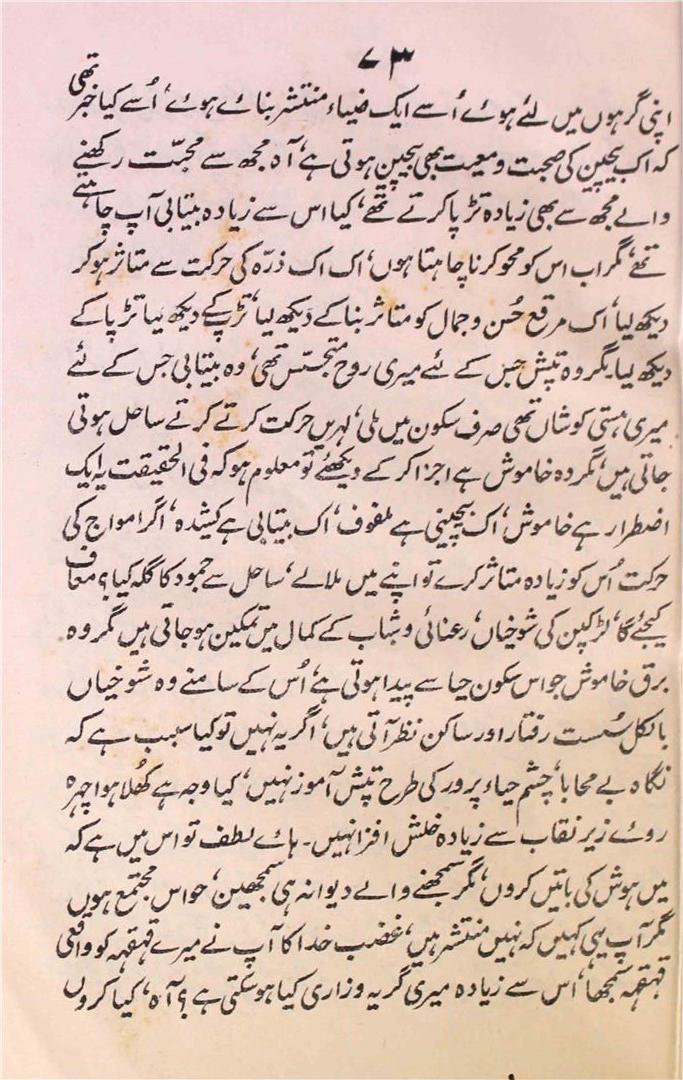 ۷۳
اپنی گرہوں میں لئے ہوئے اُسے ایک ضیاء منتشر بنائے ہوئے، اُسے کیا خبر تھی
کہ اک بیچین کی صحبت ومعیت بھی بیچین ہوتی ہے، آہ مجھ سے محبّت رکھنے
والے مجھ سے بھی زیادہ تڑپا کرتے تھے، کیا اس سے زیادہ بیتابی آپ چاہتے
تھے، مگر اب اس کو محو کرنا چاہتا ہوں، اک اک ذرّہ کی حرکت سے متاثر ہوکر
دیکھ لیا، اک مرقع حُسن وجمال کو متاثر بنا کے دیکھ لیا، تڑپ کے دیکھ لیا تڑپا کے
دیکھ لیا۔ مگر وہ تپش جس کے لئے میری روح متجسّس تھی، وہ بیتابی جس کے لئے
میری ہستی کوشاں تھی صرف سکون میں ملی، لہریں حرکت کرتے کرتے ساحل ہوتی
جاتی ہیں، مگر وہ خاموش ہے اجزا کر کے دیکھئے تو معلوم ہو کہ فی الحقیقت یہ ایک
اضطرار ہے خاموش، اک بیچینی ہے ملفوف، اک بیتابی ہے کشیدہ، اگر امواج کی
حرکت اُس کو زیادہ متاثر کرے تو اپنے میں ملالے، ساحل سے جمود کا گلہ کیا؟ معاف
کیجئے گا، لڑکپن کی شوخیاں، رعنائی وشباب کے کمال میں تمکین ہوجاتی ہیں مگر وہ
برق خاموش جو اس سکون حیا سے پیدا ہوتی ہے، اُس کے سامنے وہ شوخیاں
بالکل سُست رفتار اور ساکن نظر آتی ہیں، اگر یہ نہیں تو کیا سبب ہے کہ
نگاہ بے محابا، چشم حیاء پرور کی طرح تپش آموز نہیں، کیا وجہ ہے کھُلا ہوا چہرہ
روئے زیر نقاب سے زیادہ خلش افزا نہیں۔ ہائے لطف تو اس میں ہے کہ
میں ہوش کی باتیں کروں، مگر سمجھنے والے دیوانہ ہی سمجھیں، حواس مجتمع ہوں
مگر آپ یہی کہیں کہ نہیں منتشر ہیں، غضب خدا کا آپ نے میرے قہقہہ کو واقعی
قہقہہ سمجھا، اس سے زیادہ میری گریہ وزاری کیا ہوسکتی ہے؟ آہ، کیا کروں